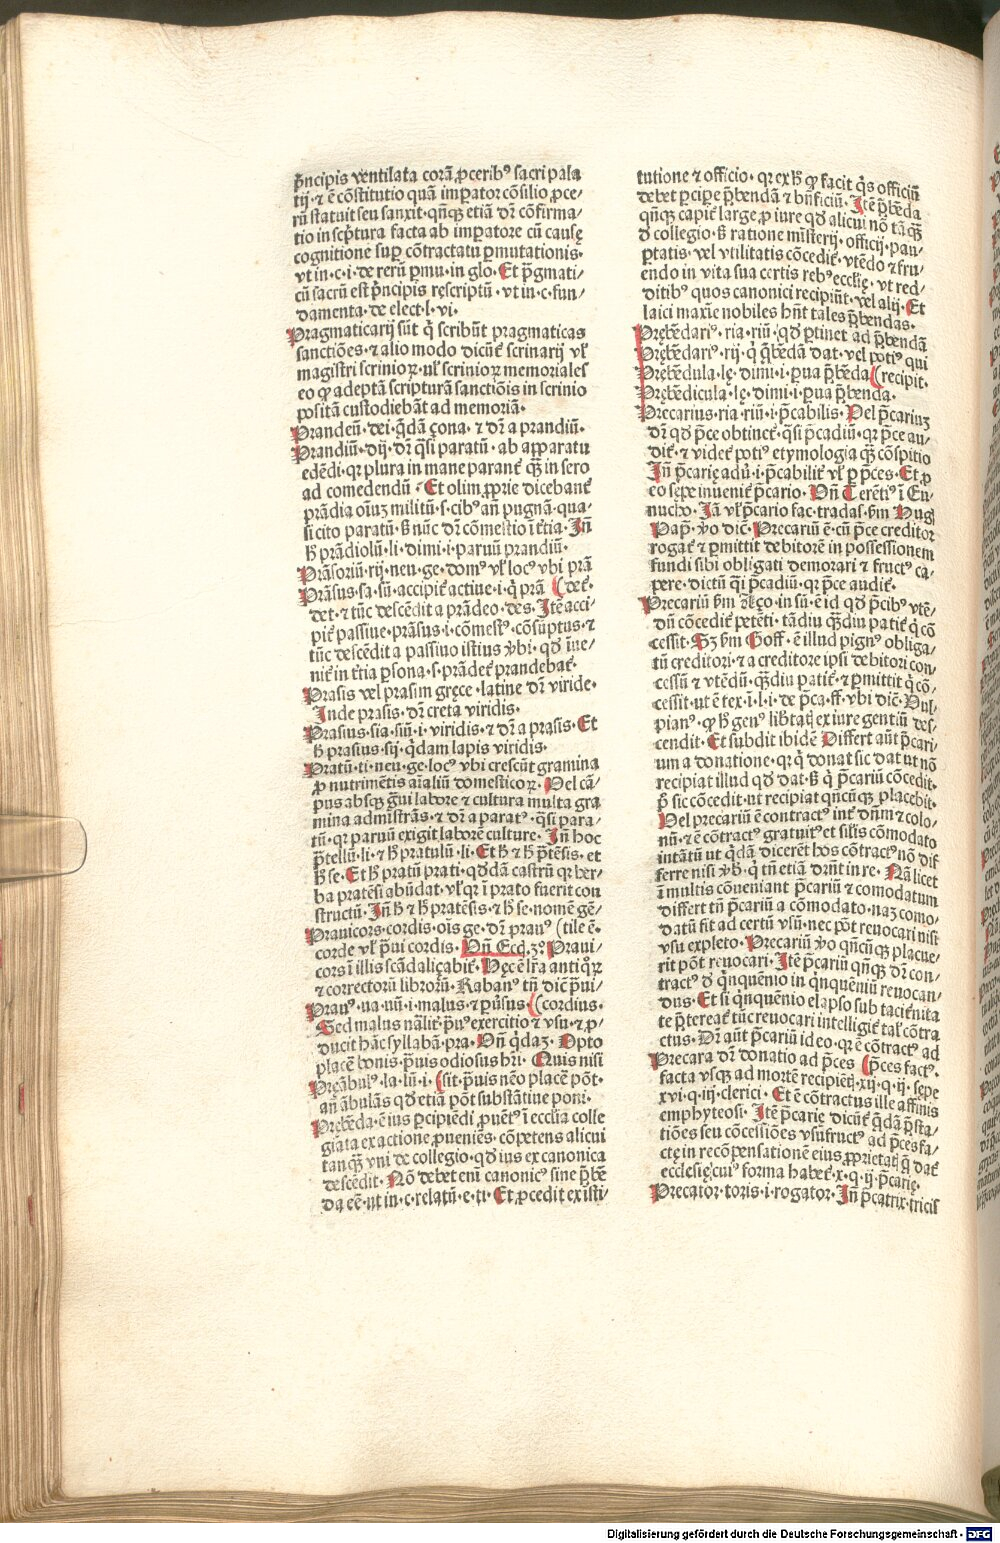 p̄ncipis ventilata corā ꝓceribꝰ sacri pala
tij· ⁊ ē cōstitutio quā imꝑator cōsilio ꝓce⸗
rū statuit seu sanxit· qn̄qꝫ etiā dr̄ cōfirma⸗
tio in scp̄tura facta ab imꝑatore cū causę
cognitione suꝑ cōtractatu ꝑmutationis·
vt in·c·i·de rerū ꝑmu·in glo· Et p̄gmati⸗
cū sacrū est p̄ncipis rescriptū· vt in·c·fun⸗
damenta·de elect·l·vi·
Pragmaticarij sūt q̇ scribūt pragmaticas
sanctiōes·⁊ alio modo dicūt᷑ scrinarij vl̓
magistri scrinioꝝ· vl̓ scrinioꝝ memoriales
eo ꝙ adeptā scripturā sanctiōis in scrinio
positā custodiebāt ad memoriā·
Prandeū· dei· q̇dā çona· ⁊ dr̄ a prandiū·
Prandiū· dij· dr̄ q̄si paratū· ab apꝑaratu
edēdi· qꝛ plura in mane parant᷑ qꝫ̄ in sero
ad comedendū· Et olim ꝓprie dicebant᷑
prādia oīuꝫ militū·s·cibꝰ an̄ pugnā· qua⸗
si cito paratū· ß nūc dr̄ cōmestio ī t̓tia· Jn̄
h̄ prādiolū·li·dimi·i·paruū prandiū·
Prāsoriū·rij·neu·ge·domꝰ vl̓ locꝰ vbi prā
Prāsus·sa·sū· accipit᷑ actiue·i·q̇ prā (det᷑·
det·⁊ tūc descēdit a prādeo·des· Jtē acci⸗
pit᷑ passiue· prāsus·i·comestꝰ· cōsūptus·⁊
tūc descēdit a passiuo istius v̓bi· qd̄ īue⸗
nit᷑ in t̓tia ꝑsona·s·prādet᷑ prandebat᷑·
Prasis vel prasim gręce· latine dr̄ viride·
Jnde prasis· dr̄ creta viridis·
Prasius·sia·siū·i·viridis·⁊ dr̄ a prasis· Et
h̄ prasius·sij·q̇dam lapis viridis·
Pratū·ti·neu·ge·locꝰ vbi crescūt gramina
ꝓ nutrimētis aīaliū domesticoꝝ· Vel cā⸗
pus absqꝫ g̊ui labore ⁊ cultura multa gra
mina admīstrās· ⁊ dr̄ a paratꝰ· q̄si para⸗
tū· qꝛ paruū exigit laborē culture· Jn̄ hoc
p̄tellū·li·⁊ h̄ pratulū·li· Et h̄ ⁊ h̄ p̄tēsis· et
h̄ se· Et h̄ pratū prati· qd̄dā castrū qꝛ her⸗
ba pratēsi abūdat· vl̓ qꝛ ī prato fuerit con
structū· Jn̄ h̄ ⁊ h̄ pratēsis·⁊ h̄ se·nomē gē⸗
Prauicors·cordis·oīs ge·dr̄ prauꝰ (tile ē·
corde vl̓ p̄ui cordis· Vn̄ Ecd·3ꝰ· Praui⸗
cors ī illis scādaliçabit᷑· Hęc ē lr̄a antiq̊ꝝ
⁊ correctorū librorū· Rabanꝰ tn̄ dic̄ p̄ui⸗
Prauꝰ·ua·uū·i·malus·⁊ ꝑūsus·((cordius·
Sed malus nālit᷑· p̄uꝰ exercitio ⁊ vsu·⁊ ꝓ⸗
ducit hāc syllabā·pra· Vn̄ q̇daꝫ· Opto
placē bonis· p̄uis odiosus hr̄i· Quis nisi
Preābulꝰ·la·lū·i· (sit· p̄uis nēo placē pōt·
an̄ ābulās qd̄ etiā pōt substātiue poni·
Prębēda·ē ius ꝑcipiēdi ꝓuētꝰ ī ecclīa colle
giata ex actione ꝓueniēs· cōpetens alicui
tanqꝫ̄ vni de collegio· qd̄ ius ex canonica
descēdit· Nō debet eni canonicꝰ sine p̄bē
da eē·ut in·c·relatū·e·ti· Et ꝓcedit ex īsti⸗
tutione ⁊ officio· qꝛ ex h̄ ꝙ facit q̇s officiū
debet ꝑcipe p̄bendā ⁊ bn̄ficiū· Jtē p̄bēda
qn̄qꝫ capit᷑ large ꝓ iure qd̄ alicui nō tāqꝫ̄
d̄ collegio· ß ratione mīsterij· officij· pau⸗
ꝑtatis· vel vtilitatis cōcedit᷑· vtēdo ⁊ fru⸗
endo in vita sua certis rebꝰ ecclię· vt red⸗
ditibꝰ quos canonici recipiūt· vel alij· Et
laici maxīe nobiles hn̄t tales p̄bendas·
Pręběndariꝰ·ria·riū· qd̄ ꝑtinet ad p̄bendā
Pręběndariꝰ·rij·q̇ q̄bedā dat· vel potiꝰ qui
Pręběndula·lę·dimi·i·ꝑua p̄bēda (recipit·
Pręběndicula·lę·dimi·i·ꝑua p̄benda·
Precarius·ria·riū·i·p̄cabilis· Vel p̄cariuꝫ
dr̄ qd̄ p̄ce obtinet᷑· q̄si p̄cadiū· qꝛ p̄ce au⸗
dit᷑· ⁊ videt᷑ potiꝰ etymologia qꝫ̄ cōspitio
Jn̄ p̄carię adū·i·p̄cabilit᷑ vl̓ ꝑ p̄ces· Et ꝓ
eo sępe inuenit᷑ p̄cario· Vn̄ Terētiꝰ ī Eu⸗
nucho· Jā vl̓ p̄cario fac· tradas· ẜm Hug
Pap̄· v̊o dic̄· Precariū ē· cū p̄ce creditor
rogat᷑ ⁊ ꝑmittit debitorē in possessionem
fundi sibi obligati demorari ⁊ fructꝰ ca⸗
pere· dictū q̄i p̄cadiū· qꝛ p̄ce audit᷑·
Precariū ẜm Açō·in sū·ē id qd̄ p̄cibꝰ vtē⸗
dū cōcedit᷑ petēti· tādiu qꝫ̄diu patit᷑ q̇ cō
cessit· Sꝫ ẜm Goff·ē illud pignꝰ obliga⸗
tū creditori·⁊ a creditore ipsi debitori con⸗
cessū ⁊ vtēdū· qꝫ̄diu patit᷑·⁊ ꝑmittit q̇ cō⸗
cessit·ut ē tex·i·l·i·de p̄ca·ff·vbi dic̄· Vul⸗
pianꝰ· ꝙ h̄ genꝰ lib̓tatꝭ ex iure gentiū des⸗
cendit· Et subdit ibidē Differt aūt p̄cari⸗
um a donatione· qꝛ q̇ donat sic dat ut nō
recipiat illud qd̄ dat· ß q̇ p̄cariū cōcedit·
p̄ sic cōcedit· ut recipiat qn̄cūqꝫ placebit·
Vel precariū ē contractꝰ int᷑ dn̄m ⁊ colo⸗
nū· ⁊ ē cōtractꝰ gratuitꝰ et silis cōmodato
intātū ut q̇dā dicerēt hos cōtractꝰ nō dif
ferre nisi v̓b·q̇ tn̄ etiā drn̄t in re· Nā licet
ī multis cōueniant p̄cariū ⁊ comodatum
differt tn̄ p̄cariū a cōmodato· naꝫ como⸗
datū fit ad certū vsū· nec pōt reuocari nisi
vsu expleto· Precariū v̊o qn̄cūqꝫ placue⸗
rit pōt reuocari· Jtē p̄cariū qn̄qꝫ dr̄ con⸗
tractꝰ d̄ q̇nquēnio in q̇nqueniū reuocan⸗
dus· Et si q̇nquēnio elapso sub taciēnita
te p̄tereat᷑ tūc reuocari intelligit᷑ tal̓ cōtra
ctus· Dr̄ aūt p̄cariū ideo· qꝛ ē cōtractꝰ ad
Precara dr̄ donatio ad p̄ces (p̄ces factꝰ·
facta vsqꝫ ad mortē recipiētꝭ·xij·q·ij·sępe
xvi·q·iij·clerici· Et ē cōtractus ille affinis
emphyteosi· Jtē p̄carię dicūt᷑ q̇dā p̄sta⸗
tiōes seu cōcessiōes vsūfructꝰ ad p̄ces fa⸗
ctę in recōpensationē eius ꝓprietatꝭ q̄ dat᷑
ecclesię· cuiꝰ forma habet᷑·x·q·ij·p̄carię·
Precator·toris·i·rogator· Jn̄ p̄catrix·tricis
Digitalisierung gefördert durch die Deutsche Forschungsgemeinschaft - DFG